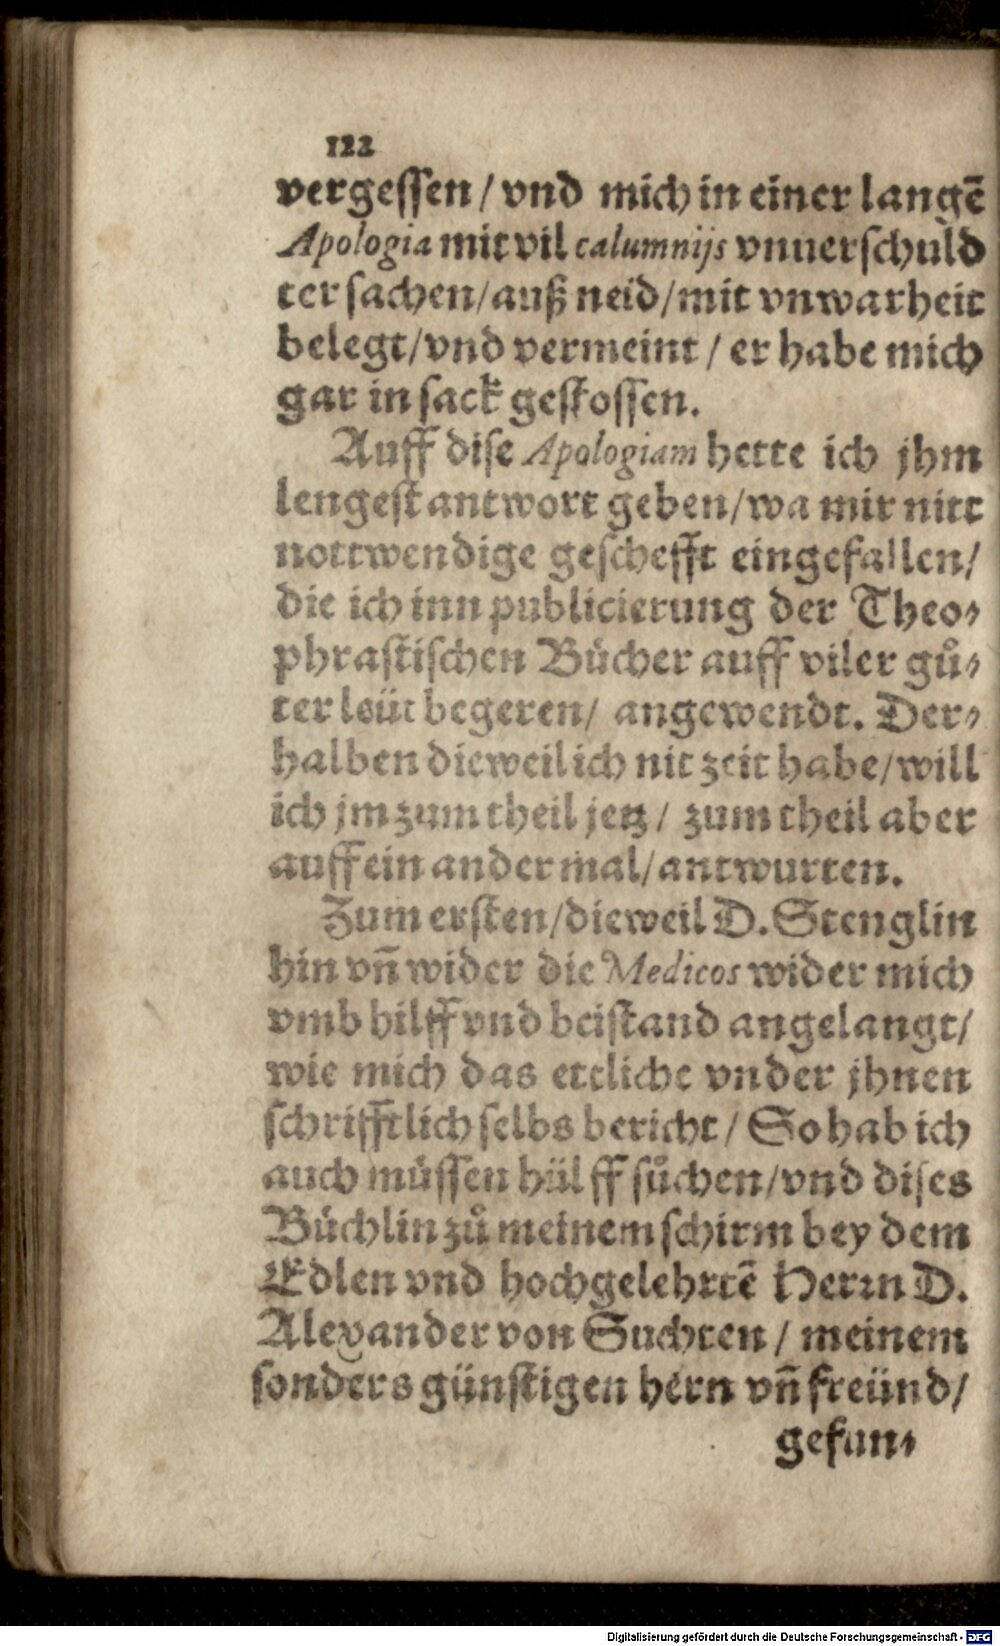 122
vergessen / vnd mich in einer langē
Apologia mit vil calumnijs vnuerschuld
ter sachen/auß neid/mit vnwarheit
belegt/vnd vermeint / er habe mich
gar in sack gestossen.
Auff dise Apologiam hette ich jhm
lengest antwort geben/wa mir nitt
nottwendige geschefft eingefallen/
die ich inn publicierung der Theo-
phrastischen Bücher auff viler gů-
ter leüt begeren/ angewendt. Der-
halben dieweil ich nit zeit habe/will
ich jm zum theil jetz / zum theil aber
auff ein ander mal/antwurten.
Zum ersten/dieweil D. Stenglin
hin vñ wider die Medicos wider mich
vmb hilff vnd beistand angelangt/
wie mich das ettliche vnder jhnen
schrifftlich selbs bericht / So hab ich
auch müssen hülff sůchen/vnd dises
Büchlin zů meinem schirm bey dem
Edlen vnd hochgelehrtē Herrn D.
Alexander von Suchten / meinem
sonders günstigen hern vñ freünd/
gefun-
Digitalisierung gefördert durch die Deutsche Forschungsgemeinschaft - DFG